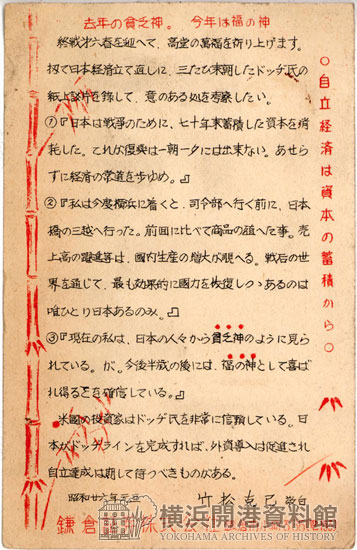 去年の貧乏神。 今年は福の神
○自立経済は資本の蓄積から○
終戦才六春を迎へて、高堂の萬福を祈り上げます。
扨て日本経済立て直しに、三たび来朝したドッヂ氏の
紙上談片を録して、意のある処を考察したい。
①『日本は戦争のために、七十年来蓄積した資本を消
耗した。これが復興は一朝一夕には出来ない。あせら
ずに経済の常道を歩ゆめ。』
②『私は今度横浜に着くと、司令部へ行く前に、日本
橋の三越へ行った。前回に比べて商品の殖へた事。売
上高の躍進等は、國内生産の増大が覗へる。戦后の世
界を通じて、最も効果的に國力を恢復しつゝあるのは
唯ひとり日本あるのみ。』
③『現在の私は、日本の人々から貧乏神のように見ら
れている。が。今後半歳の後には、福の神として喜ば
れ得ることを確信している。』
米國の投資家はドッヂ氏を非常に信頼している。日
本がドッヂラインを完成すれば、外資導入は促進され
自立達成は期して待つべきものがある。
昭和廿六年元旦
竹松
敬白
鎌倉
横浜開港資料館
YOKOHAMA ARCHIVES OF HISTORY